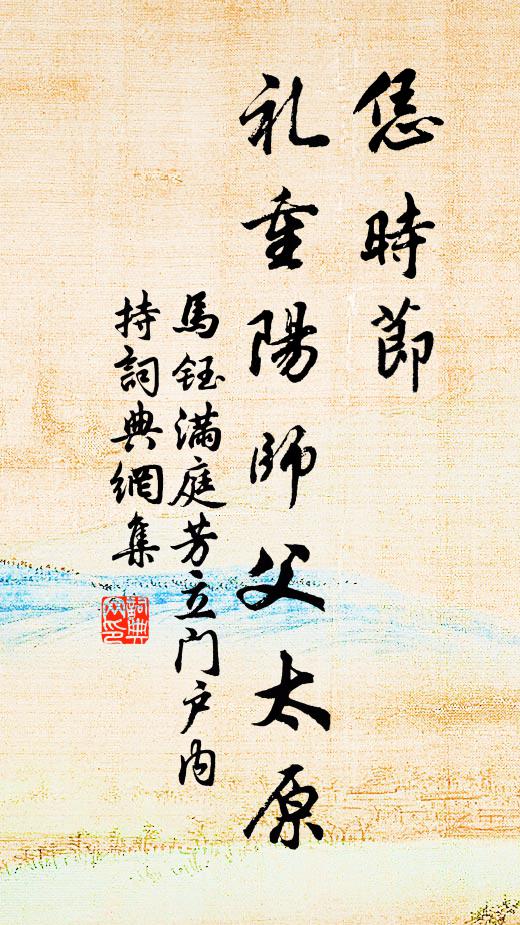 恁時節
礼重陽師父太原
馬鈺滿庭芳立门户内
持詞典網集
詞典